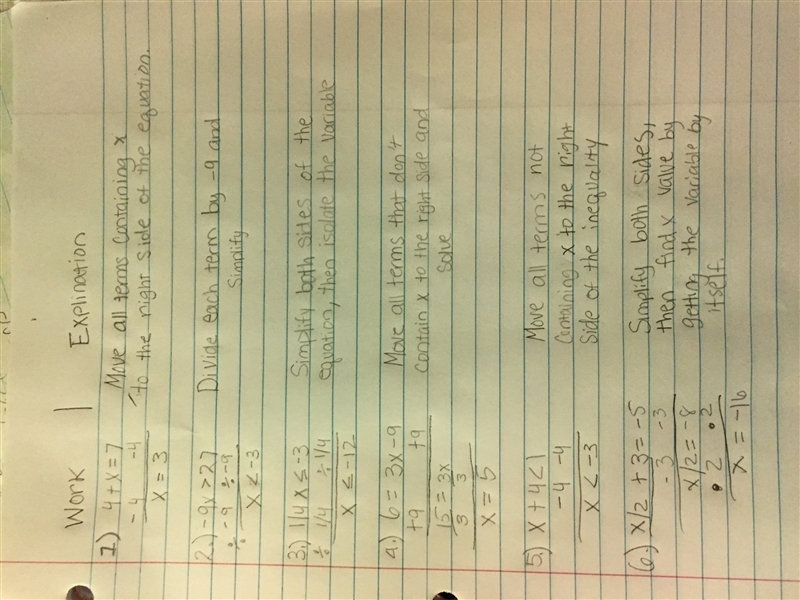 Work | Explination
1.) 4+x=7 Move all terms containing x
-4 -4 to the right side of the equation.
x = 3
2.) -9x > 27 Divide each term by -9 and
÷ -9 ÷-9 Simplify
x < -3
3.) 1/4 x ≤ -3 Simplify both sides of the
÷ 1/4 ÷ 1/4 equation, then isolate the variable
x ≤ -12
4.) 6 = 3x-9 Move all terms that don't
+9 +9 contain x to the right side and
15 = 3x Solve
3 3
x = 5
5.) x + 4 < 1 Move all terms not
-4 -4 containing x to the right
x < -3 side of the inequality
6.) x/2 + 3 = -5 Simplify both sides,
-3 -3 then find x value by
x/2 = -8 getting the variable by
• 2 • 2 itself.
x = -16